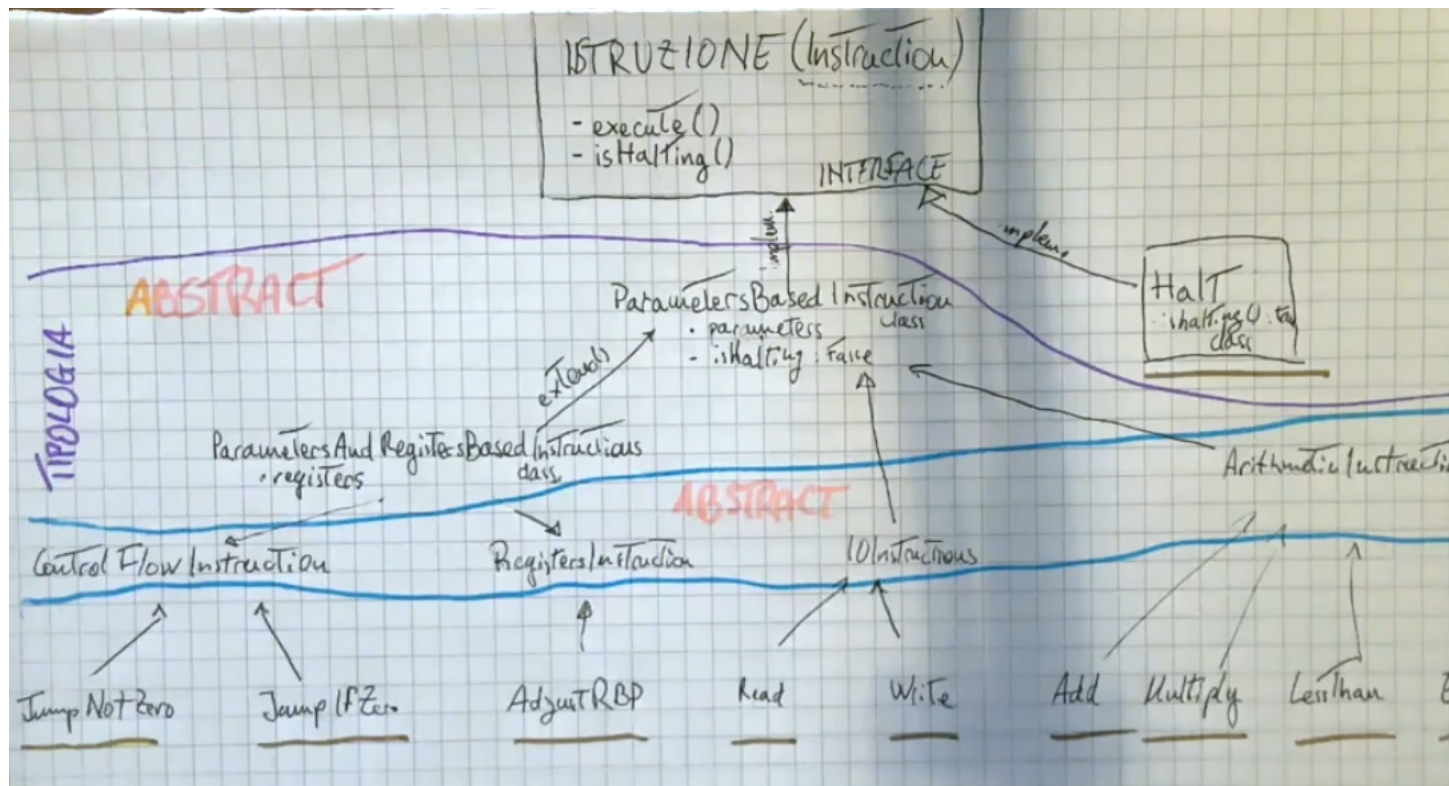 ISTRUZIONE (Instruction)
- execute()
- isHalting()
INTERFACE
implem.
implem.
ABSTRACT
TIPOLOGIA
ParametersBasedInstruction
class
. parameters
- isHalting: False
Halt
ishalting():
class
extends
ParametersAndRegistersBasedInstructions
class
. registers
ArithmeticInstructio
ABSTRACT
Control Flow Instruction
RegistersInstruction
IOInstructions
Jump Not Zero
Jump If Zero
AdjustRBP
Read
Write
Add
Multiply
LessThan